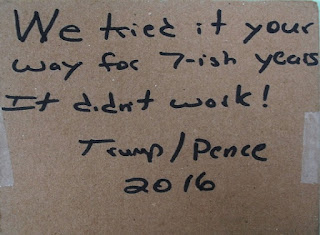 We tried it your
way for 7-ish years
It didn't work!
Trump/Pence
2016